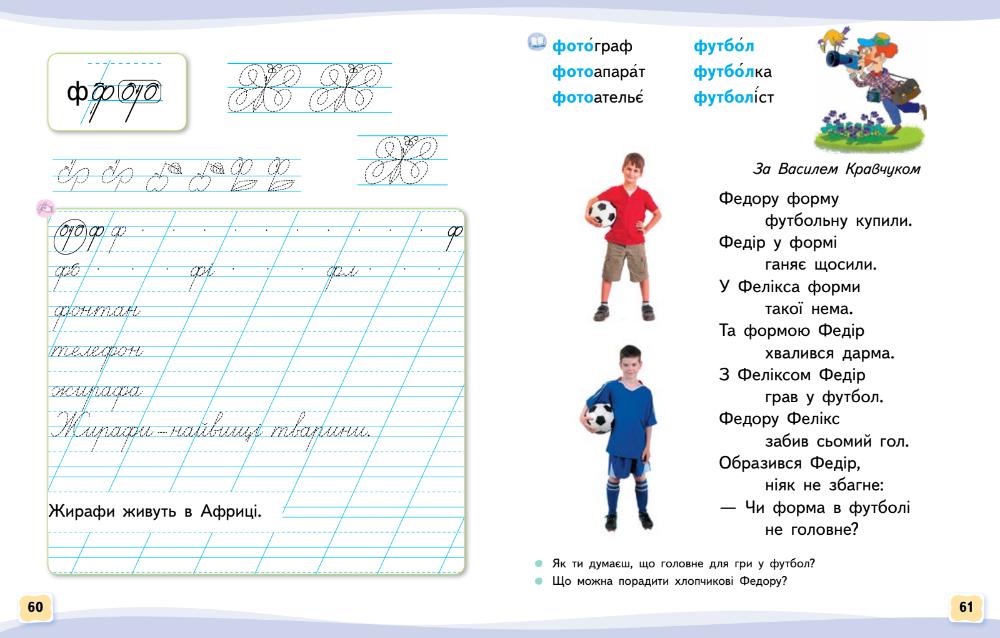 ф ф ф
ф ф ф ф
фо фі фл
фонтан
телефон
жирафа
Жирафи – найвищі тварини.
Жирафи живуть в Африці.
60
фото́граф
фотоапара́т
фотоательє́
футбо́л
футбо́лка
футболі́ст
За Василем Кравчуком
Федору форму
футбольну купили.
Федір у формі
ганяє щосили.
У Фелікса форми
такої нема.
Та формою Федір
хвалився дарма.
З Феліксом Федір
грав у футбол.
Федору Фелікс
забив сьомий гол.
Образився Федір,
ніяк не збагне:
— Чи форма в футболі
не головне?
Як ти думаєш, що головне для гри у футбол?
Що можна порадити хлопчикові Федору?
61